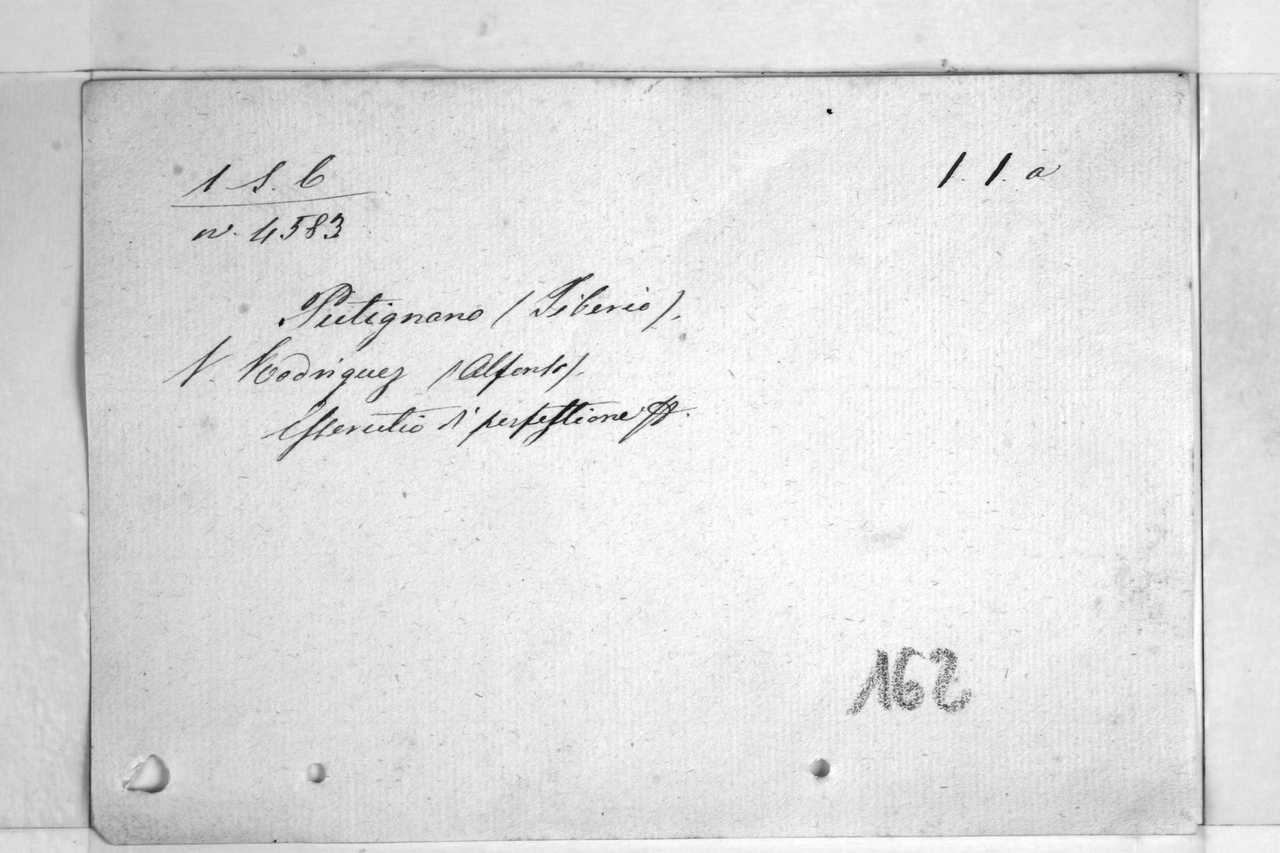 1 S. b
1. 1. a
n. 4583
Putignano (Tiberio).
V. Rodriguez (Alfonso).
Essercitio di perfettione
162